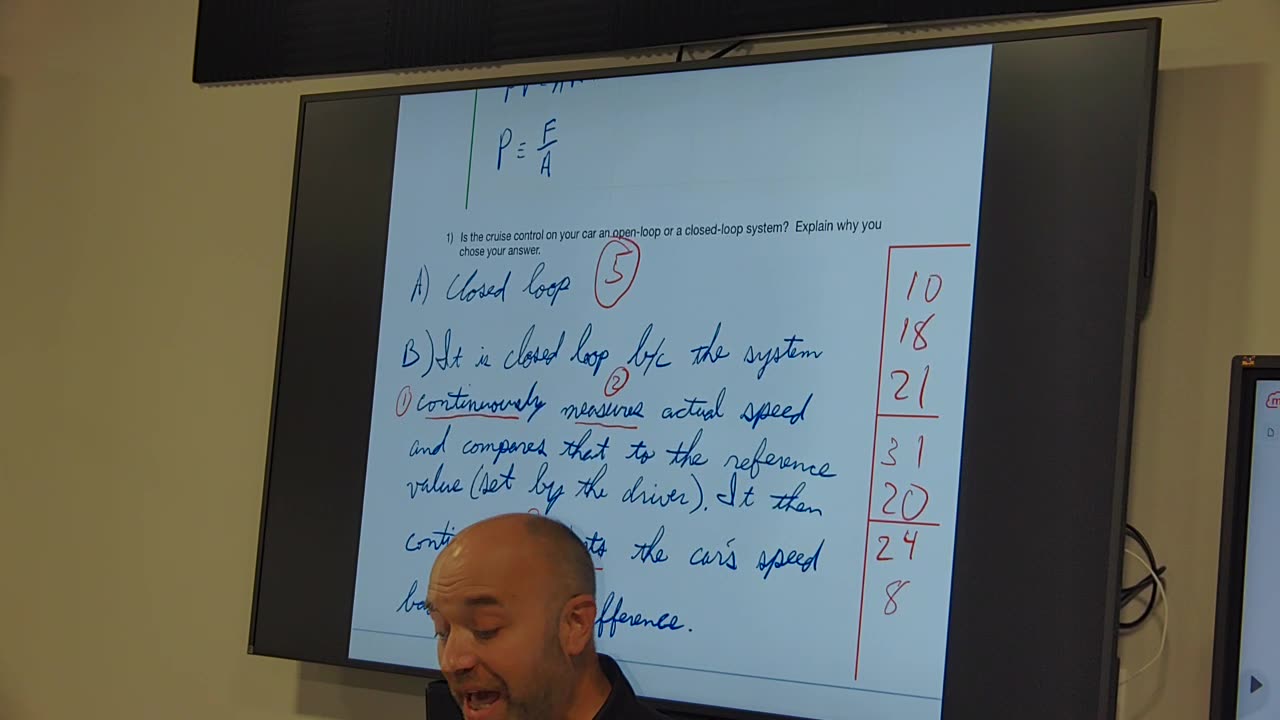 P ≡ F/A
1) Is the cruise control on your car an open-loop or a closed-loop system? Explain why you
chose your answer.
A) Closed loop 5
B) It is closed loop b/c the system
2
1 continuously measures actual speed
and compares that to the reference
value (set by the driver). It then
conti the car's speed
ba fference.
10
18
21
31
20
24
8